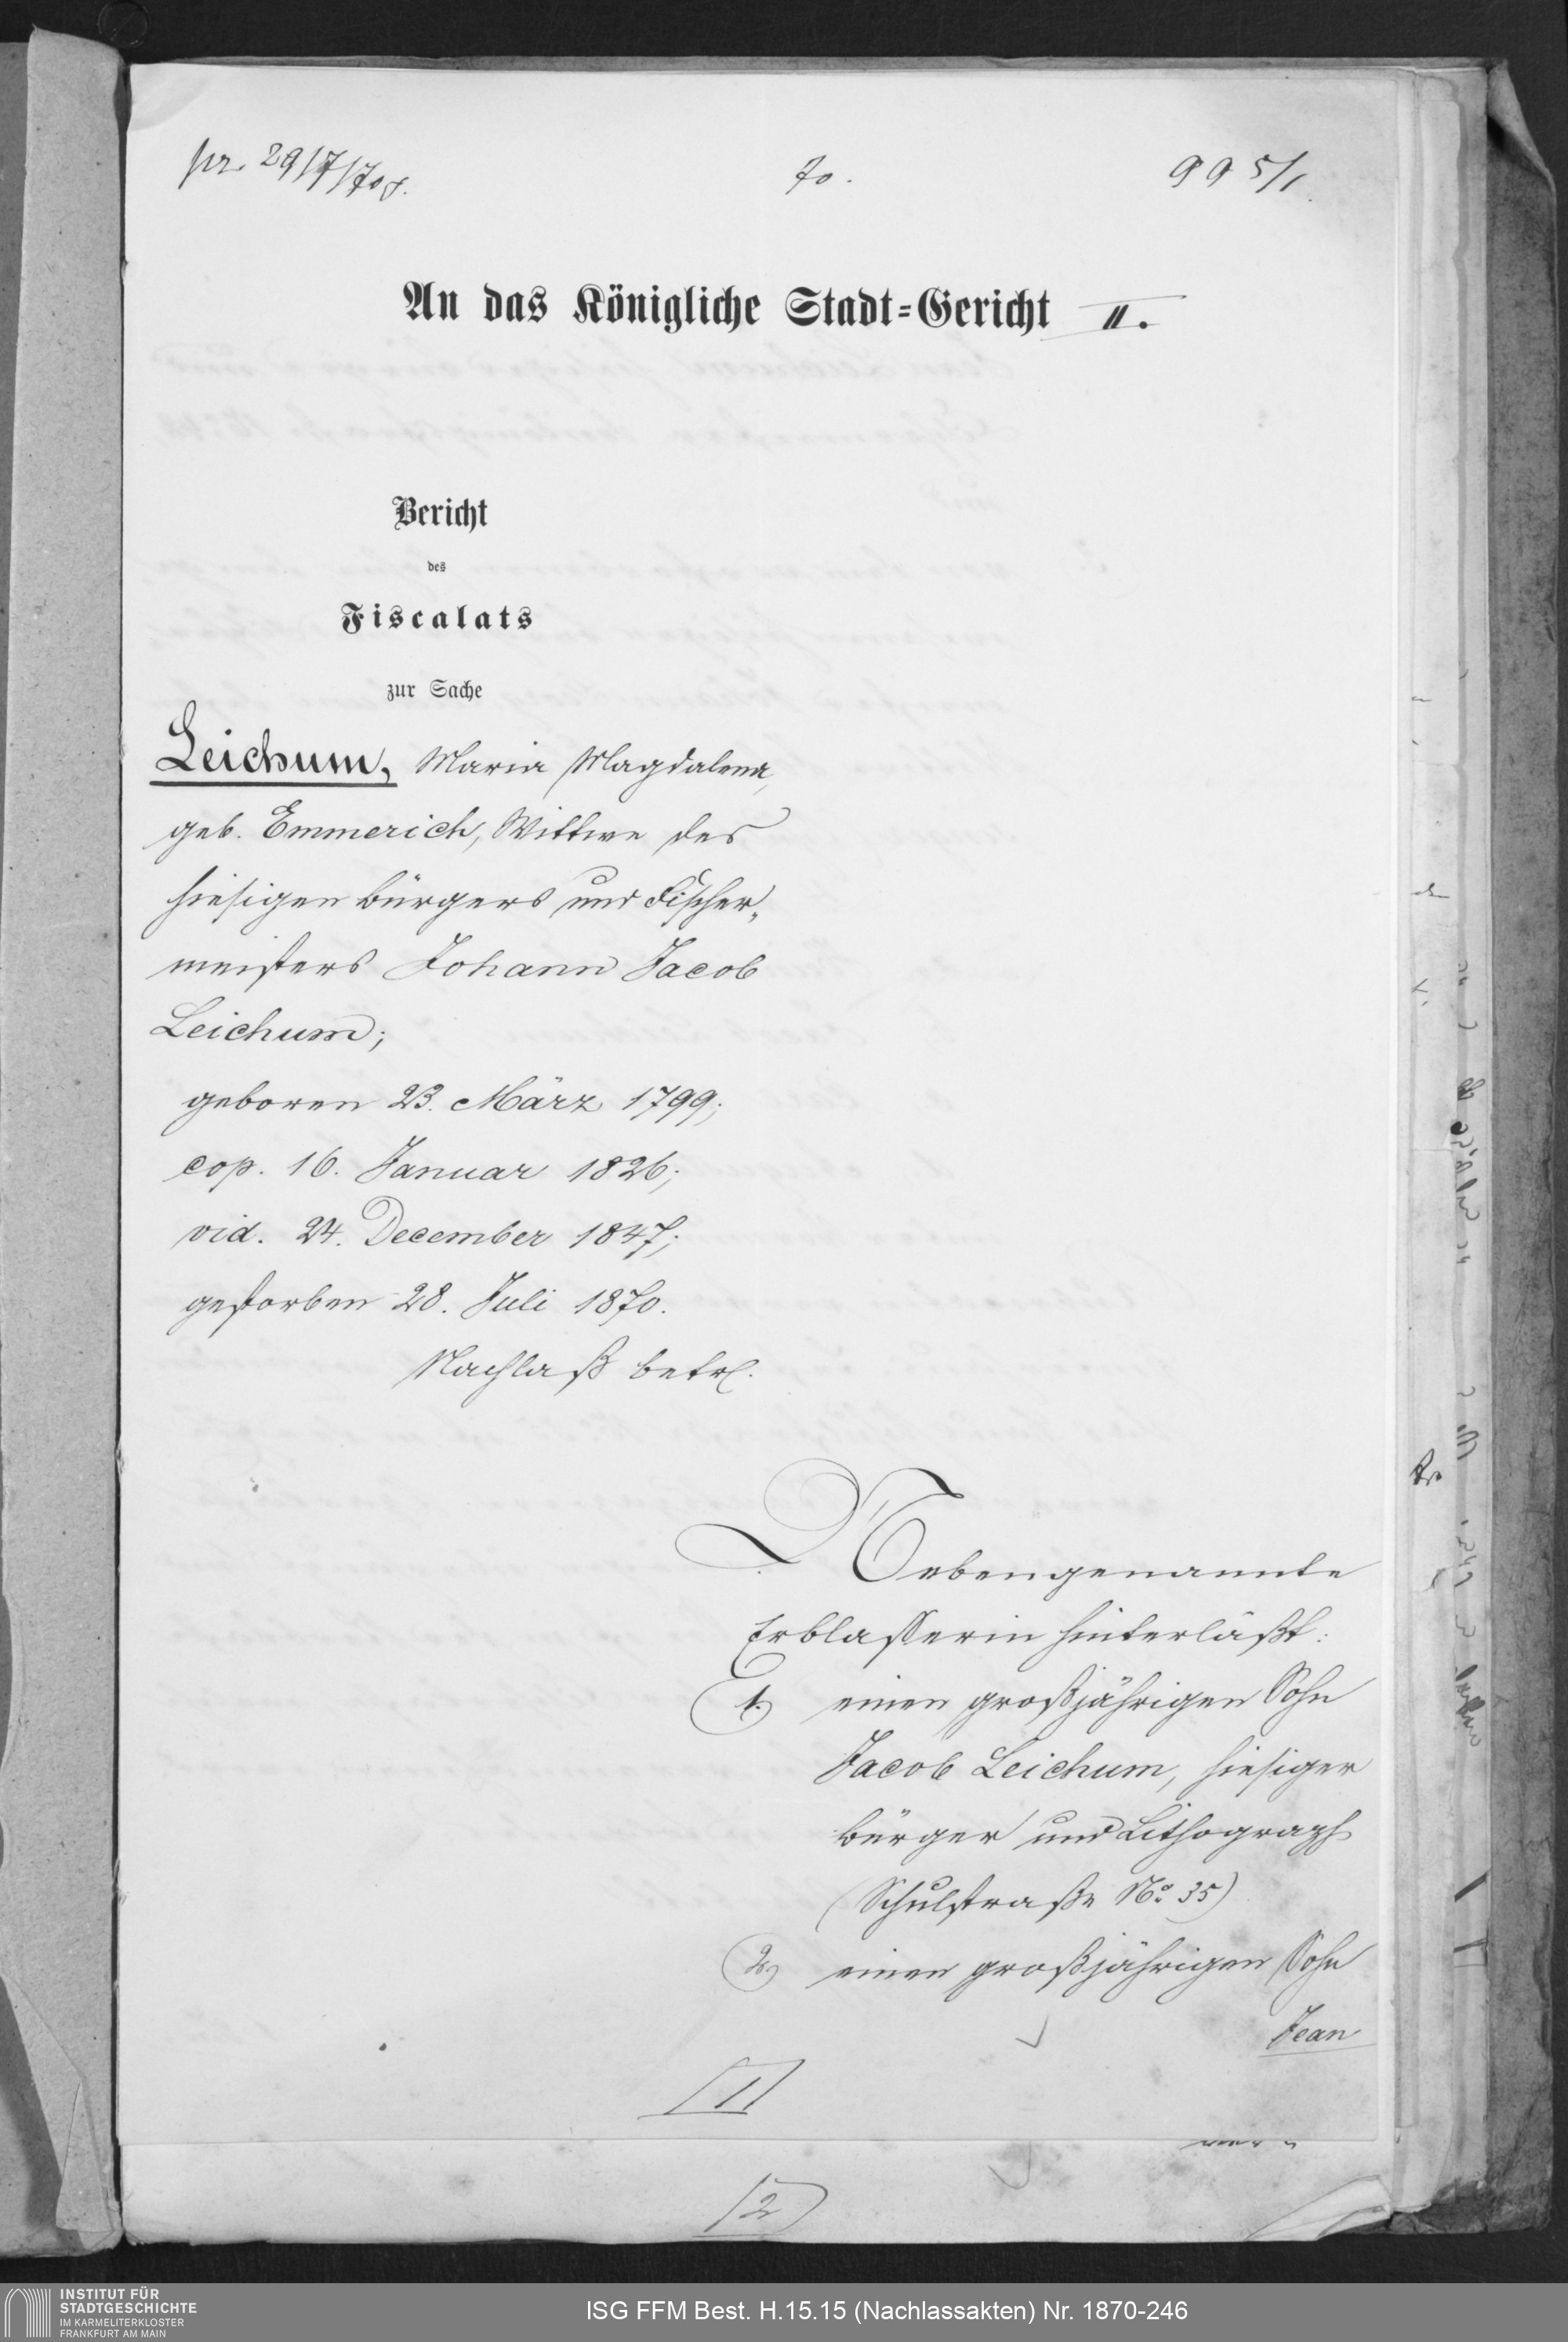 pr. 29/7/70
70.
995/1
An das Königliche Stadt=Gericht II.
Bericht
des
Fiscalats
zur Sache
Leichum, Maria Magdalena,
geb. Emmerich, Wittwe des
hiesigen Bürgers und Fischer„
meisters Johann Jacob
Leichum;
geboren 23. März 1799;
cop. 16. Januar 1826;
vid. 24. December 1847;
gestorben 28. Juli 1870.
Nachlaß betr.
Nebengenannte
Erblasserin hinterläßt:
1.) einen großjährigen Sohn
Jacob Leichum, hiesiger
Bürger und Lithograph
(Schulstraße No. 35)
2.) einen großjährigen Sohn
Jean
1
2
INSTITUT FÜR
STADTGESCHICHTE
IM KARMELITERKLOSTER
FRANKFURT AM MAIN
ISG FFM Best. H.15.15 (Nachlassakten) Nr. 1870-246